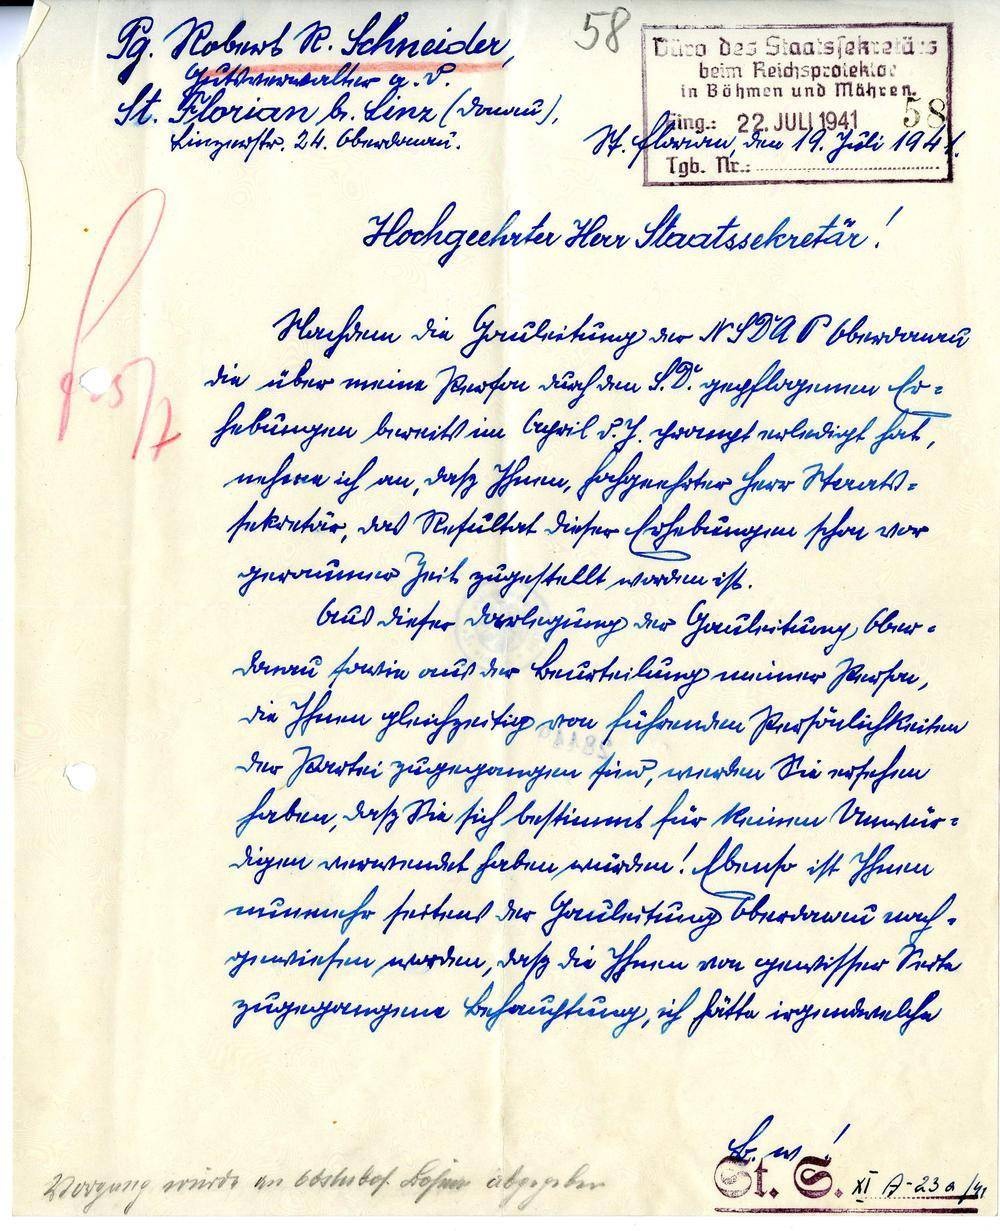 Pg. Robert R. Schneider,
Gutsverwalter a. D.
St. Florian b. Linz (Donau),
Linzerstr. 24. Oberdonau.
58
Büro des Staatssekretärs
beim Reichsprotektor
in Böhmen und Mähren.
Eing.: 22. JULI 1941
58
Tgb. Nr.:
St. Florian, den 19. Juli 1941.
Hochgeehrter Herr Staatssekretär!
Nachdem die Gauleitung der NSDAP Oberdonau
die über meine Person durch den S.D. gepflogenen Er-
hebungen bereits im April d. J. prompt erledigt hat,
nehme ich an, dasz Ihnen, hochgeehrter Herr Staats-
sekretär, das Resultat dieser Erhebungen schon vor
geraumer Zeit zugestellt worden ist.
Aus dieser Darlegung der Gauleitung Ober-
donau sowie aus der Beurteilung meiner Person,
die Ihnen gleichzeitig von führenden Persönlichkeiten
der Partei zugegangen sind, werden Sie ersehen
haben, dasz Sie sich bestimmt für keinen Unwür-
digen verwendet haben würden! Ebenso ist Ihnen
nunmehr seitens der Gauleitung Oberdonau nach-
gewiesen worden, dasz die Ihnen von gewisser Seite
zugegangene Behauptung, ich hätte irgendwelche
b. w!
St. S. XI A-23a/41
Vorgang wurde an abgegeben